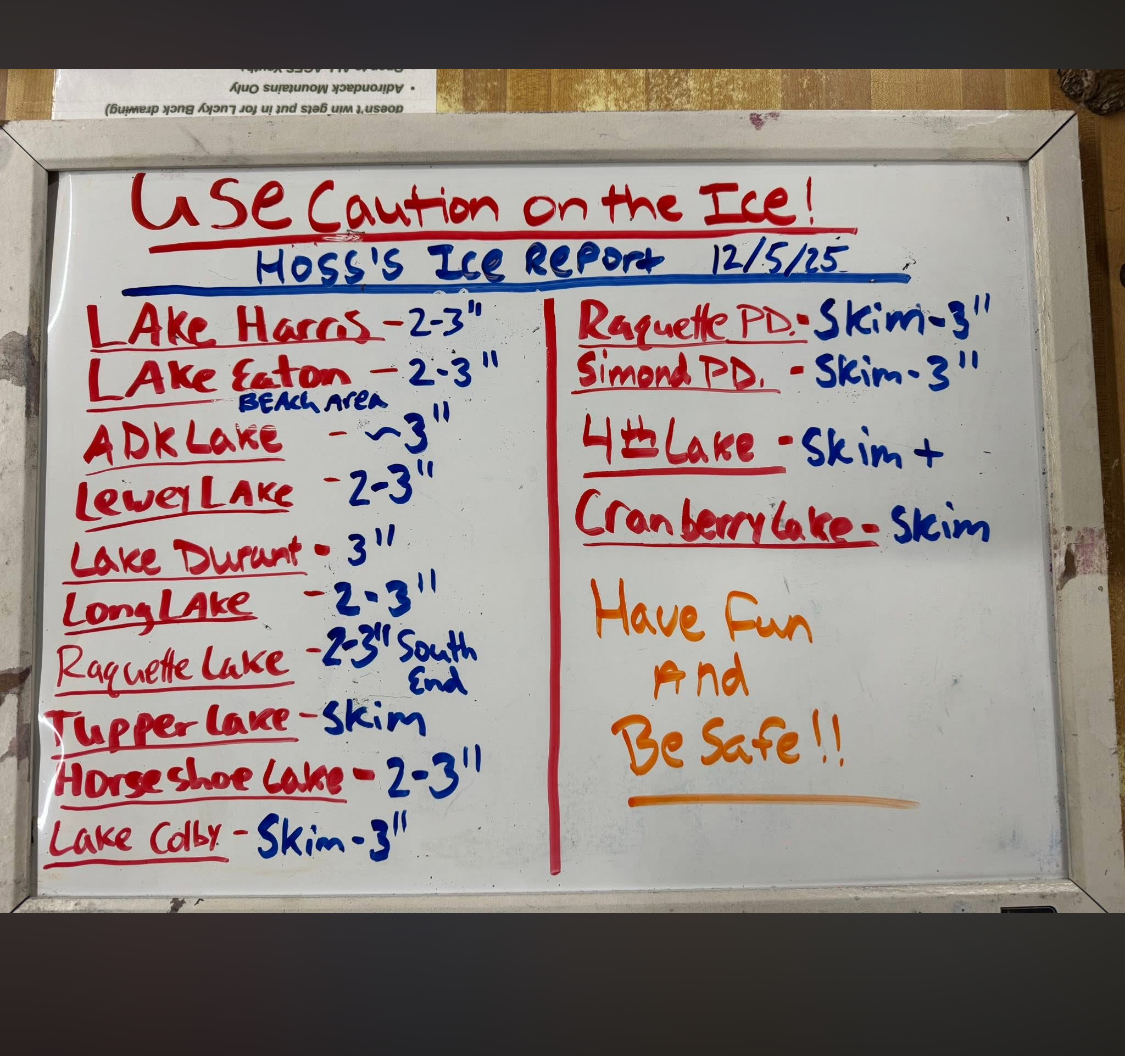 Open to ALL AGES Youth:
• Adirondack Mountains Only
doesn't win gets put in for Lucky Buck drawing)
Use Caution on the Ice!
Hoss's Ice Report 12/5/25
Lake Harris - 2-3"
Lake Eaton - 2-3"
Beach Area
ADK Lake - ~3"
Lewey Lake - 2-3"
Lake Durant - 3"
Long Lake - 2-3"
Raquette Lake - 2-3" South
End
Tupper Lake - Skim
Horseshoe Lake - 2-3"
Lake Colby - Skim-3"
Raquette PD. - Skim-3"
Simond PD. - Skim-3"
4th Lake - Skim +
Cranberry Lake - Skim
Have Fun
And
Be Safe!!